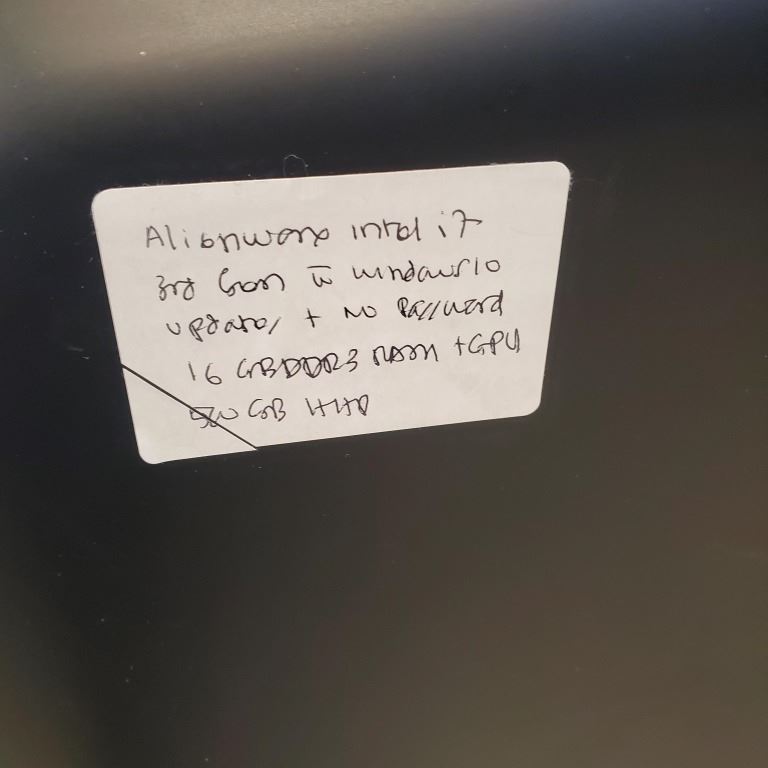 Alienware intel i7
3rd Gen w̅ windows 10
updates + No Password
16 GB DDR3 RAM + GPU
500 GB HHD